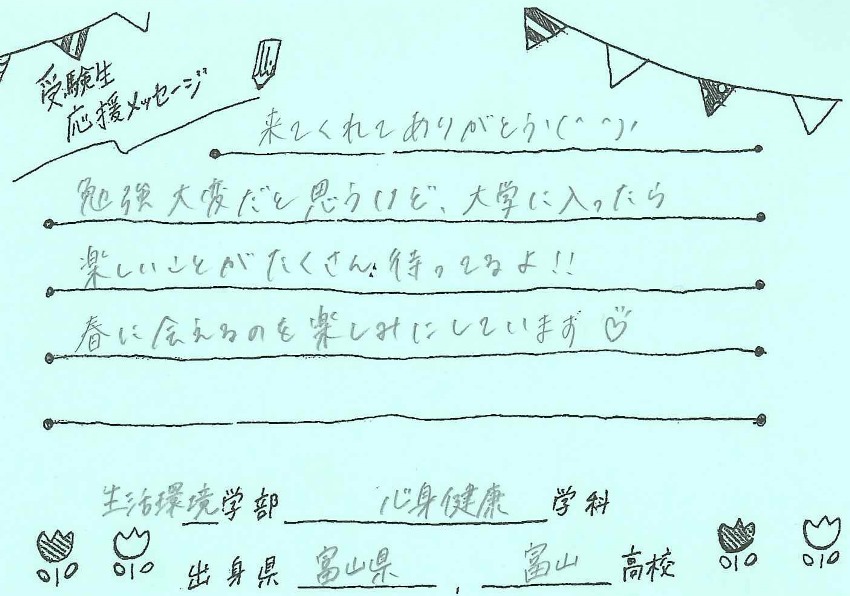 受験生
応援メッセージ
来てくれてありがとう!(^^)!
勉強大変だと思うけど、大学に入ったら
楽しいことがたくさん待ってるよ!!
春に会えるのを楽しみにしています♡
生活環境学部 心身健康 学科
出身県 富山県 , 富山 高校